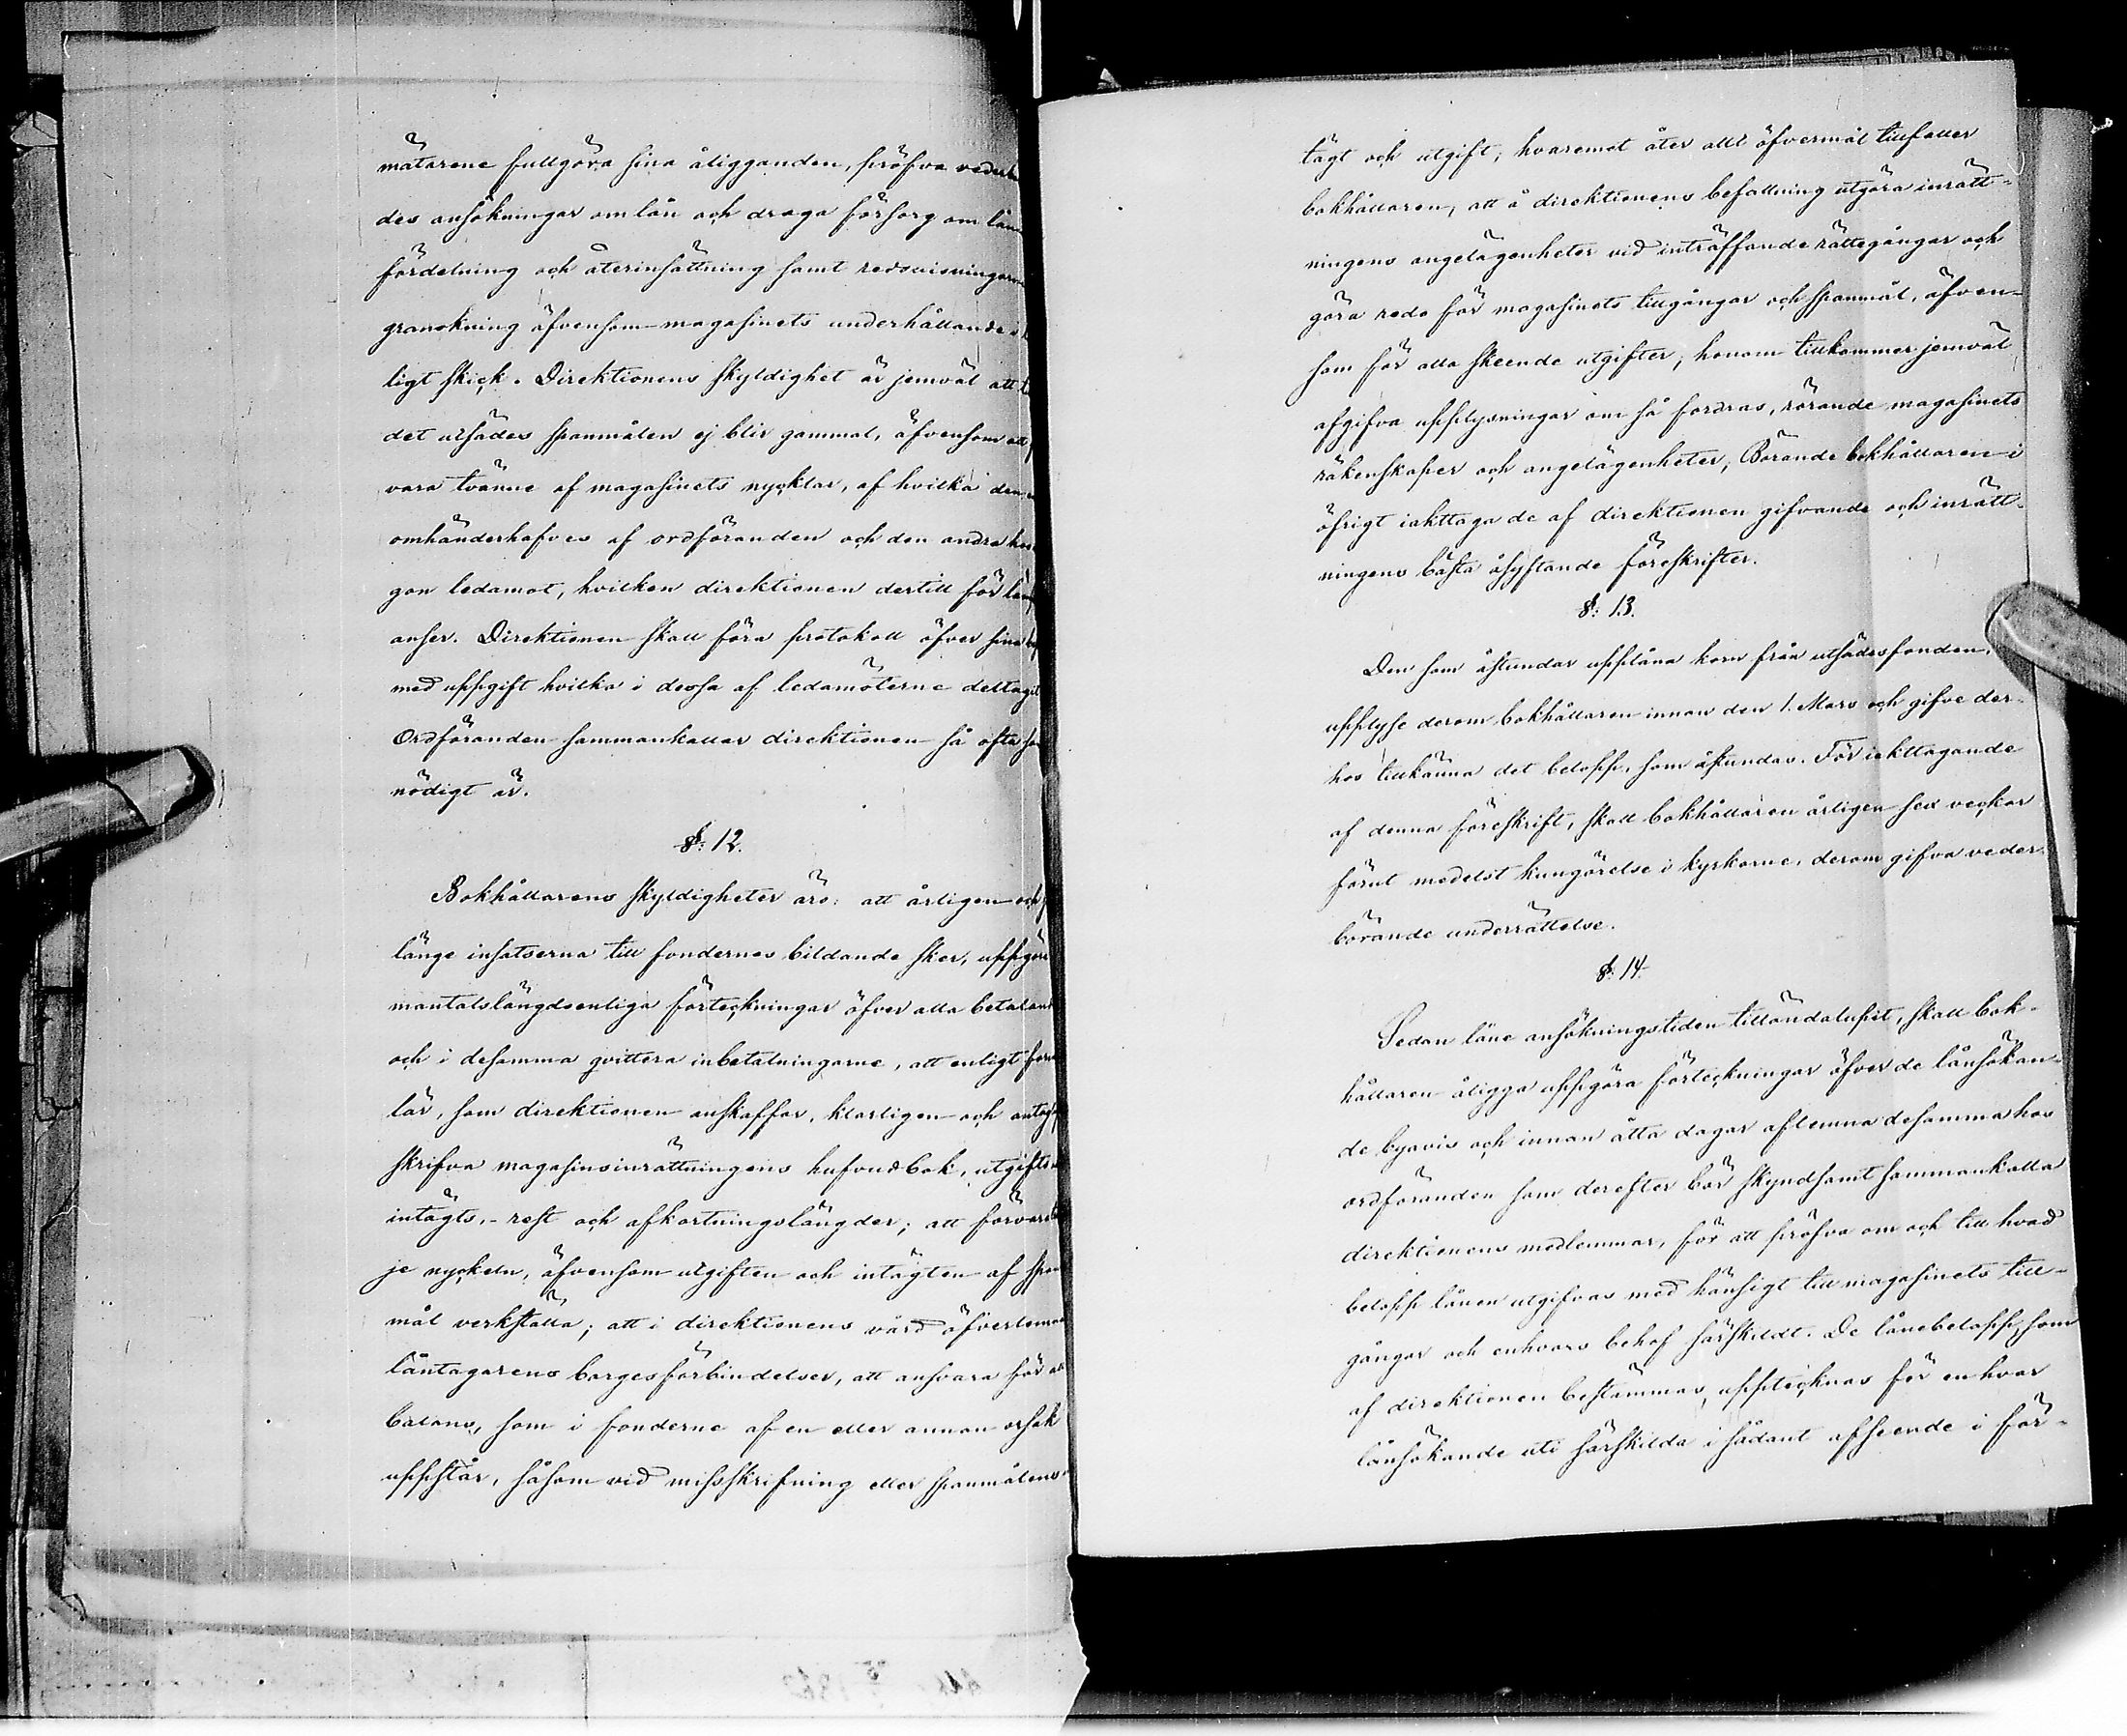 mätarene fullgöra sina åligganden, pröfva
des ansökningar om lån och draga försorg om
fördelning och återinsättning samt redovisningarne
granskning äfvensom magasinets underhållande i
ligt skick. Direktionens skyldighet är jemväl att
det utsädes spanmålen ej blir gammal, äfvensom att
vara tvänne af magasinets nycklar, af hvilka den
omhänderhafves af ordföranden och den andra
gon ledamot, hvilken direktionen dertill för
anser. Direktionen skall föra protokoll öfver sina
med uppgift hvilka i dessa af ledamöterne deltagit
Ordföranden sammankallar direktionen så ofta
nödigt är.
§: 12.
Bokhållarens skyldigheter äro: att årligen och
länge insatserna till fondernes bildande sker, uppgöra
mantalslängdsenliga förteckningar öfver alla
och i desamma qvittera inbetalningarne, att enligt
lär, som direktionen anskaffar, klarligen och
skrifva magasinsinrättningens hufvudbok, utgifts
intägts,- rest och afkortningslängder; att förvara
je nyckeln, äfvensom utgiften och intägten af
mål verkställa; att i direktionens vård öfverlemna
låntagarens borgesförbindelser, att ansvara för
balans, som i fonderne af en eller annan orsak
uppstår, såsom vid misskrifning eller spanmålens
tägt och utgift; hvaremot åter allt öfvermål tillfaller
bokhållaren, att å direktionens befallning utgöra inrätt-
ningens angelägenheter vid inträffande rättegångar och
göra reda för magasinets tillgångar och spanmål, äfven-
som för alla skeende utgifter; honom tillkommer jemväl
afgifva upplysningar om så fordras, rörande magasinets
räkenskaper och angelägenheter; Börande bokhållaren i
öfrigt iakttaga de af direktionen gifvande och inrätt-
ningens bästa åsyftande föreskrifter.
§: 13.
Den som åstundar upplåna korn från utsädesfonden,
upplyse derom bokhållaren innan den 1. Mars och gifve der-
hos tillkänna det belopp, som åstundas. För iakttagande
af denna föreskrift, skall bokhållaren årligen sex veckor
förut medelst kungörelse i kyrkorne, derom gifva veder-
börande underrättelse.
§: 14.
Sedan låne ansökningstiden tilländalupit, skall bok-
hållaren åligga uppgöra förteckningar öfver de lånsökan-
de byavis och innan åtta dagar aflemna desamma hos
ordföranden som derefter bör skyndsamt sammankalla
direktionens medlemmar, för att pröfva om och till hvad
belopp lånen utgifvas med hänsigt till magasinets till-
gångar och enhvars behof särskildt. De lånebelopp, som
af direktionen bestämmas, upptecknas för en hvar
lånsökande uti särskilda i sådant afseende i för-